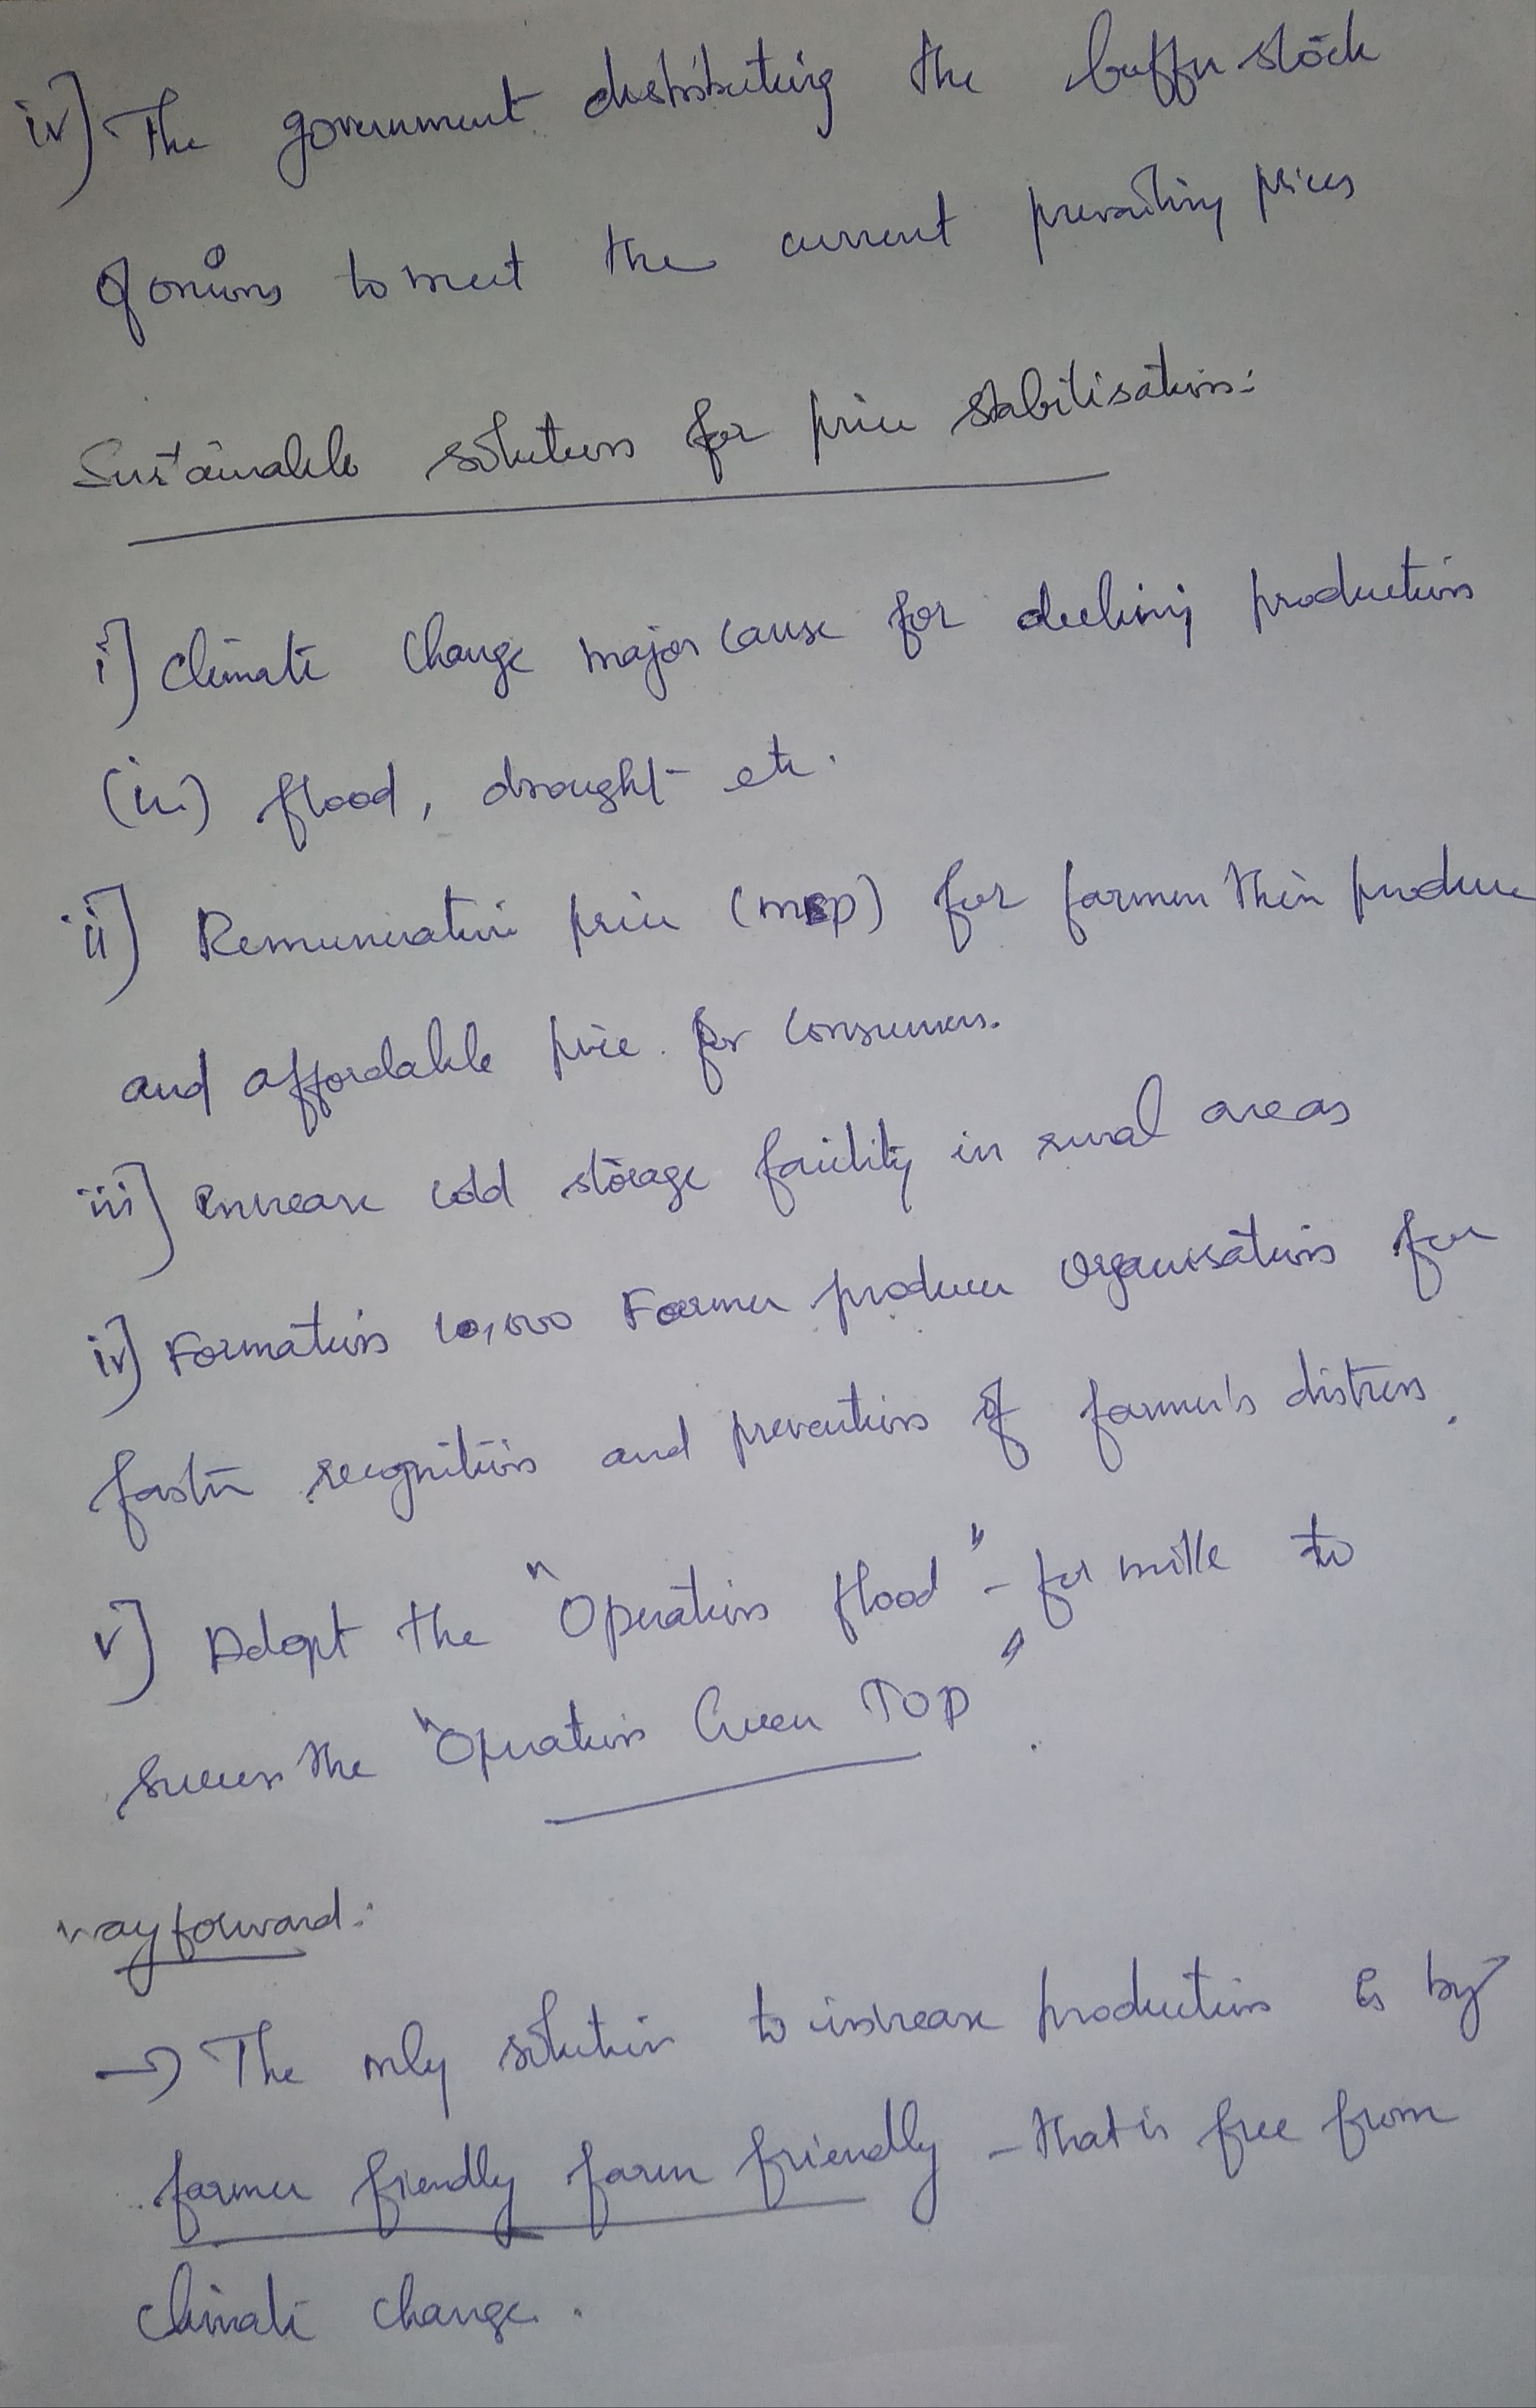 iv] The government distributing the buffer stock
of onions to meet the current prevailing prices
Sustainable solutions for price stabilisation:-
i] Climate change major cause for declining production
(ie) flood, drought etc.
ii] Remunerative price (MSP) for farmers their produce
and affordable price for consumers.
iii] Increase cold storage facility in rural areas
iv] Formation 10,000 Farmer producer Organisations for
faster recognition and prevention of farmer's distress.
v] Adopt the "Operation flood" - for milk to
success the "Operation Green TOP".
way forward:-
→ The only solution to increase production is by
farmer friendly farm friendly - that is free from
climate change.